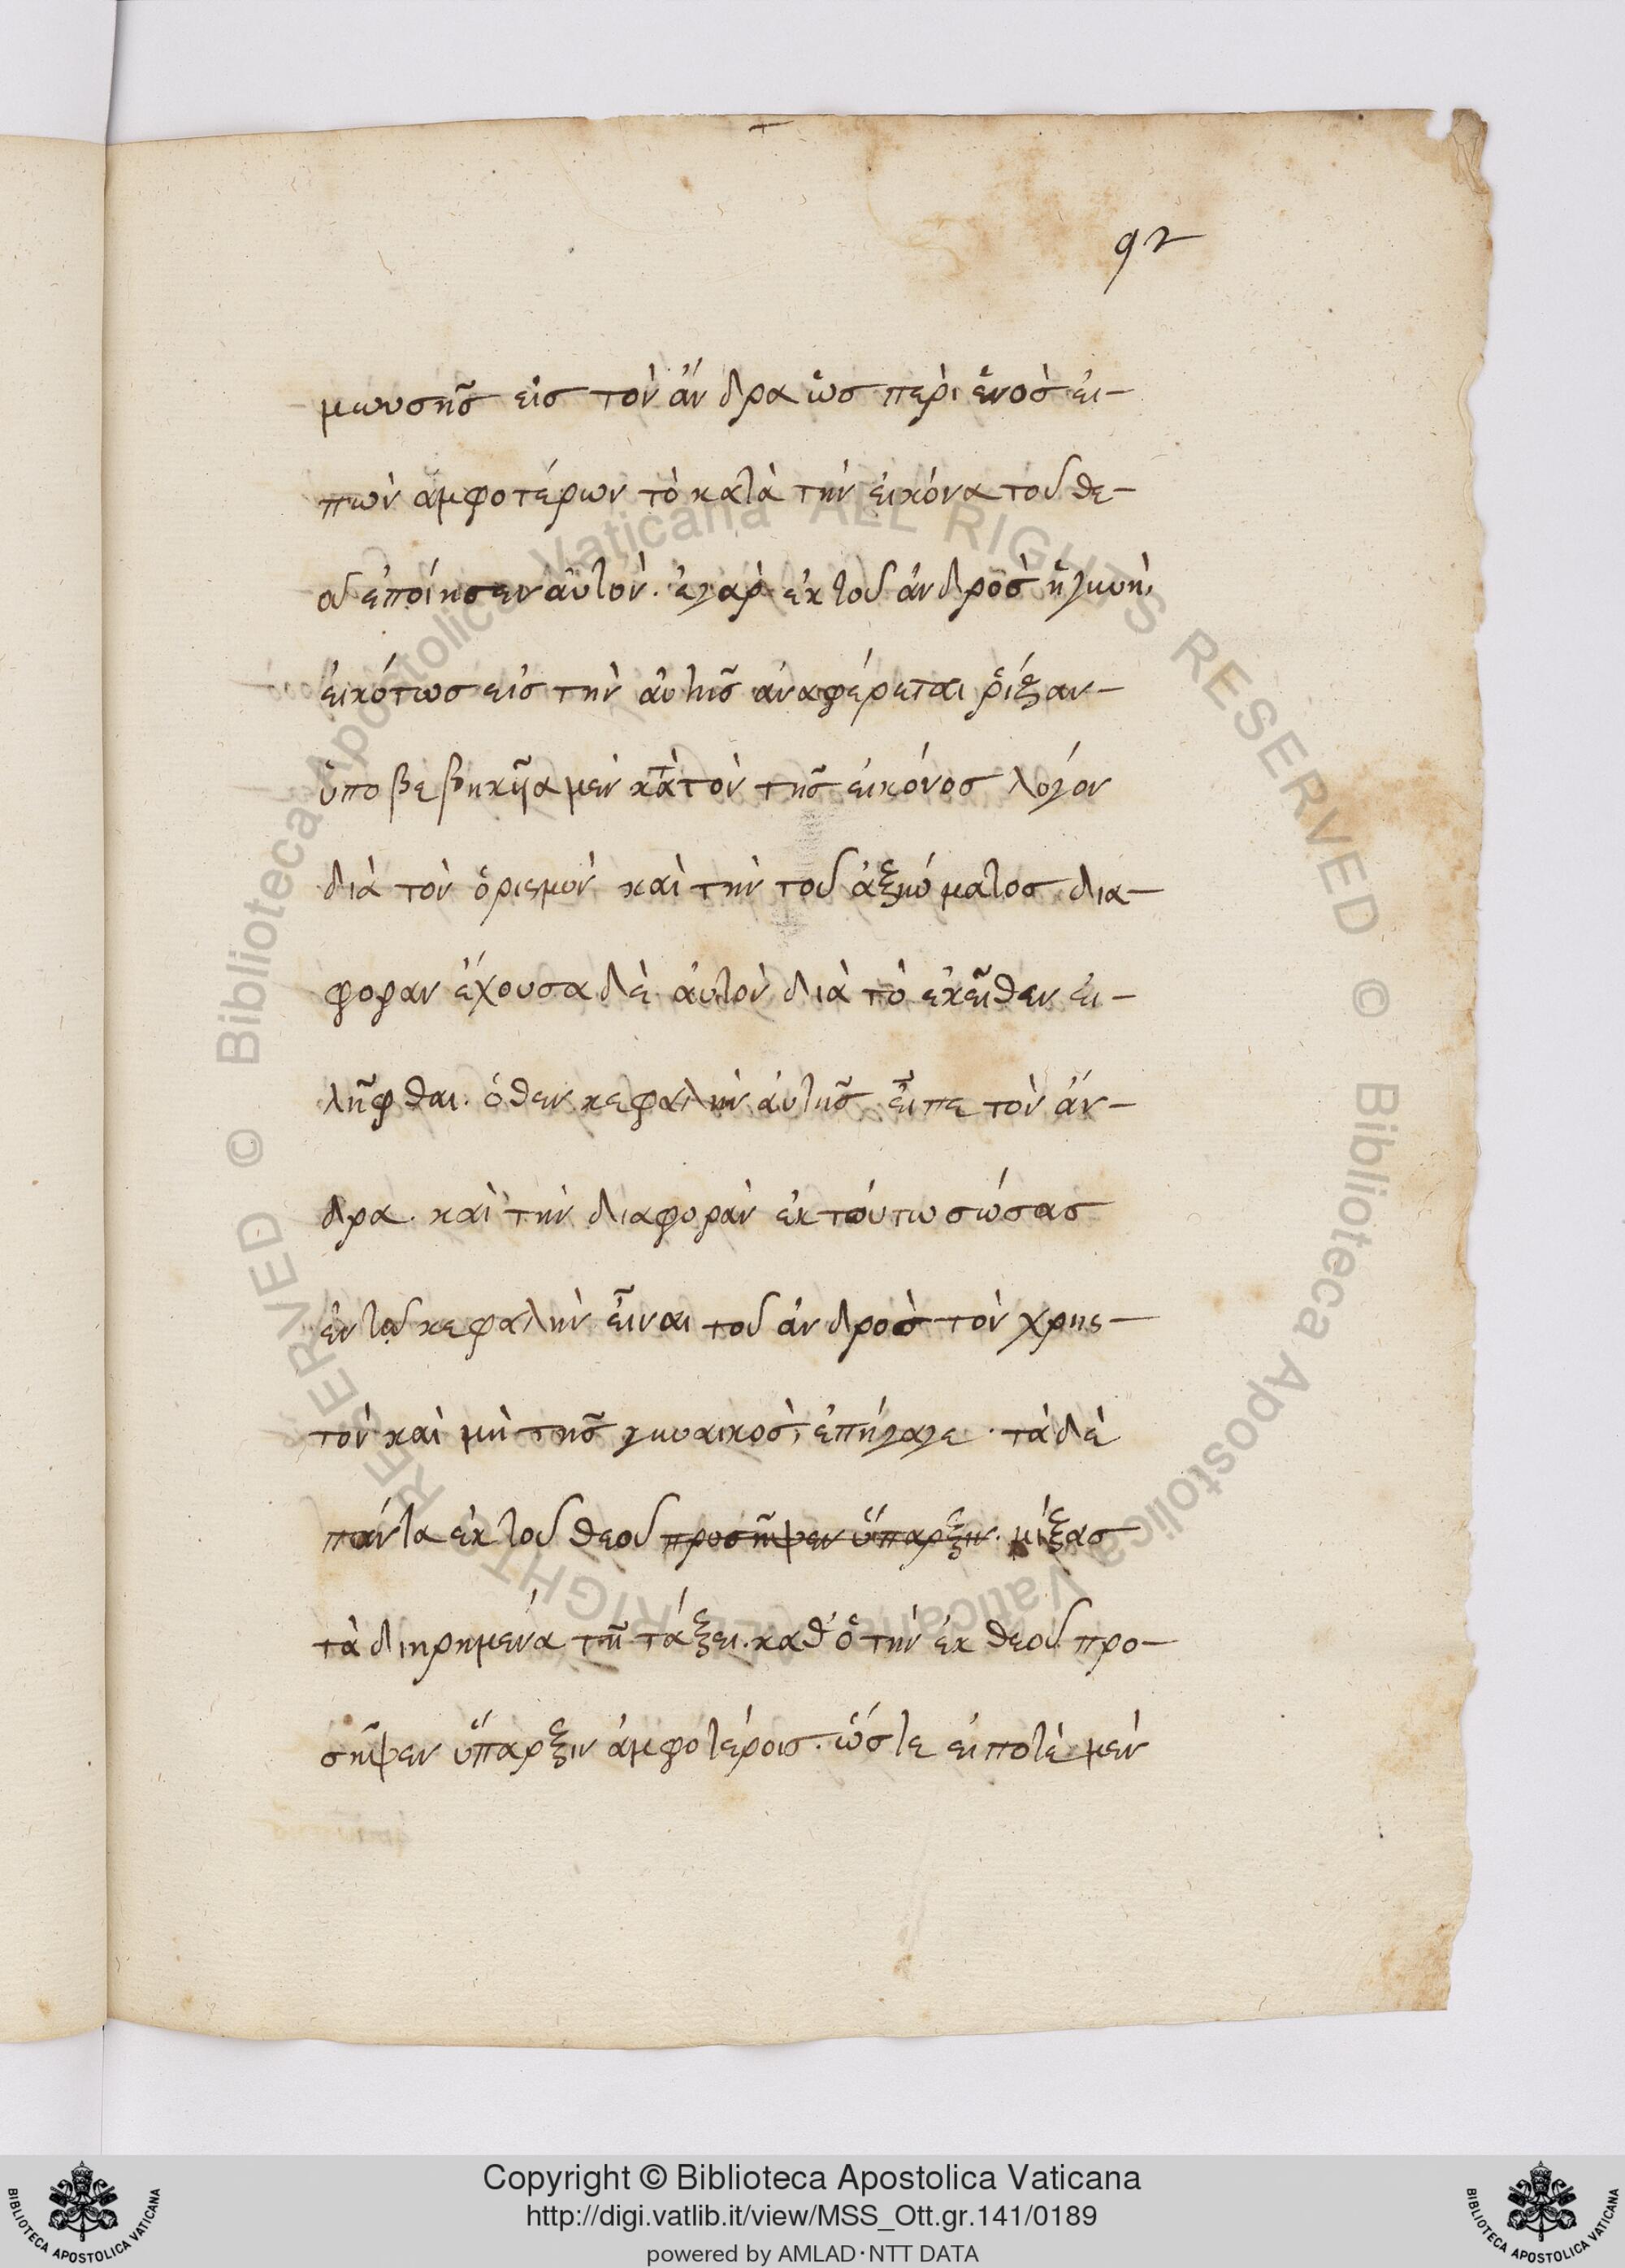 92
μωυσῆς εἰς τὸν ἄνδρα ὡς περὶ ἑνὸς εἰ-
πὼν ἀμφοτέρων τὸ κατὰ τὴν εἰκόνα τοῦ θε-
οῦ ἐποίησεν αὐτόν. ἐγὰρ ἐκ τοῦ ἀνδρὸς ἡ γυνὴ,
εἰκότως εἰς τὴν αὐτῆς ἀναφέρεται ῥίξαν-
ὑποβεβηκῆα μὲν κατὰ τὸν τῆς εἰκόνος λόγον
διὰ τὸν ὁρισμὸν καὶ τὴν τοῦ ἀξιώματος δια-
φορὰν ἔχουσα δὲ αὐτὸν διὰ τὸ ἐκεῖθεν εἰ-
λῆφθαι. ὅθεν κεφαλὴν αὐτῆς εἶπε τὸν ἄν-
δρα. καὶ τὴν διαφορὰν ἐκ τούτω σώσας
ἐν τοῦ κεφαλὴν εἶναι τοῦ ἀνδρὸς τὸν χρης-
τὸν καὶ μὴ τῆς γυναικὸς, ἐπήγαγε. τὰ δὲ
πάντα ἐκ τοῦ θεοῦ προσῆψεν ὕπαρξιν. μίξας
τὰ διῃρημένα τῇ τάξει. καθ' ὃ τὴν ἐκ θεοῦ προ-
σῆψεν ὕπαρξιν ἀμφοτέροις. ὥστε εἰ ποτὲ μὲν
Copyright © Biblioteca Apostolica Vaticana
http://digi.vatlib.it/view/MSS_Ott.gr.141/0189
powered by AMLAD·NTT DATA